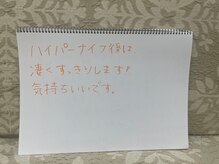 ハイパーナイフ後は、
凄くすっきりします!
気持ちいいです。